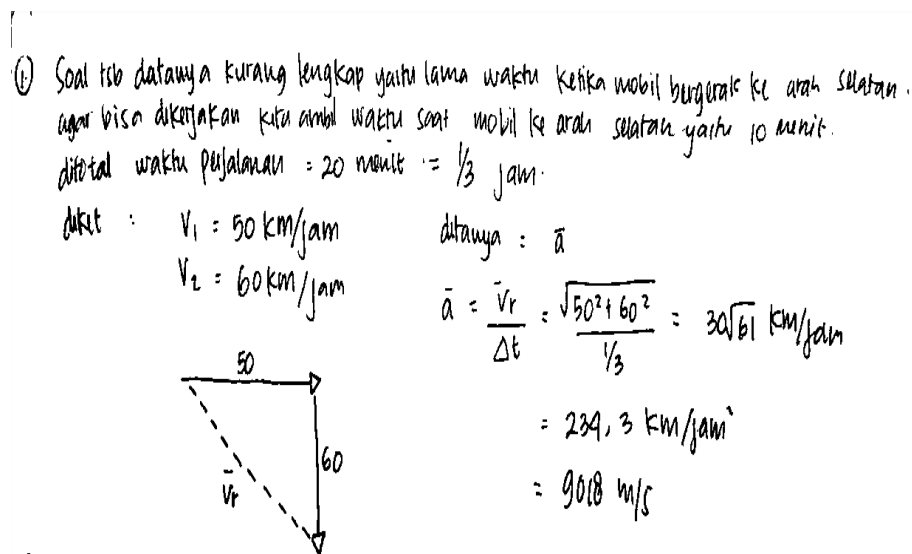 ① Soal tsb datanya kurang lengkap yaitu lama waktu ketika mobil bergerak ke arah selatan.
agar bisa dikerjakan kita ambil waktu saat mobil ke arah selatan yaitu 10 menit.
ditotal waktu perjalanan = 20 menit = 1/3 jam.
diket : V₁ = 50 km/jam
V₂ = 60 km/jam
ditanya : ā
ā = V̄r / Δt = √(50² + 60²) / (1/3) = 30√61 km/jam
= 234,3 km/jam
= 9018 m/s
50
60
V̄r